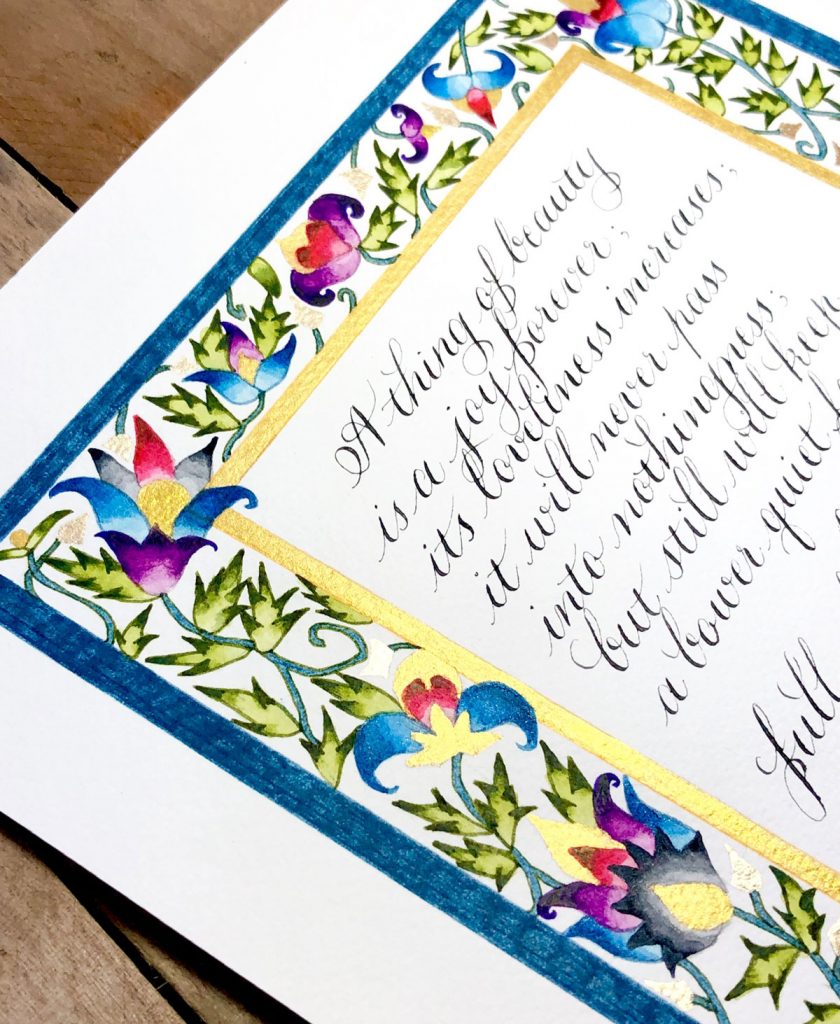 A thing of beauty
is a joy forever;
its loveliness increases;
it will never pass
into nothingness;
but still will keep
a bower quiet
full